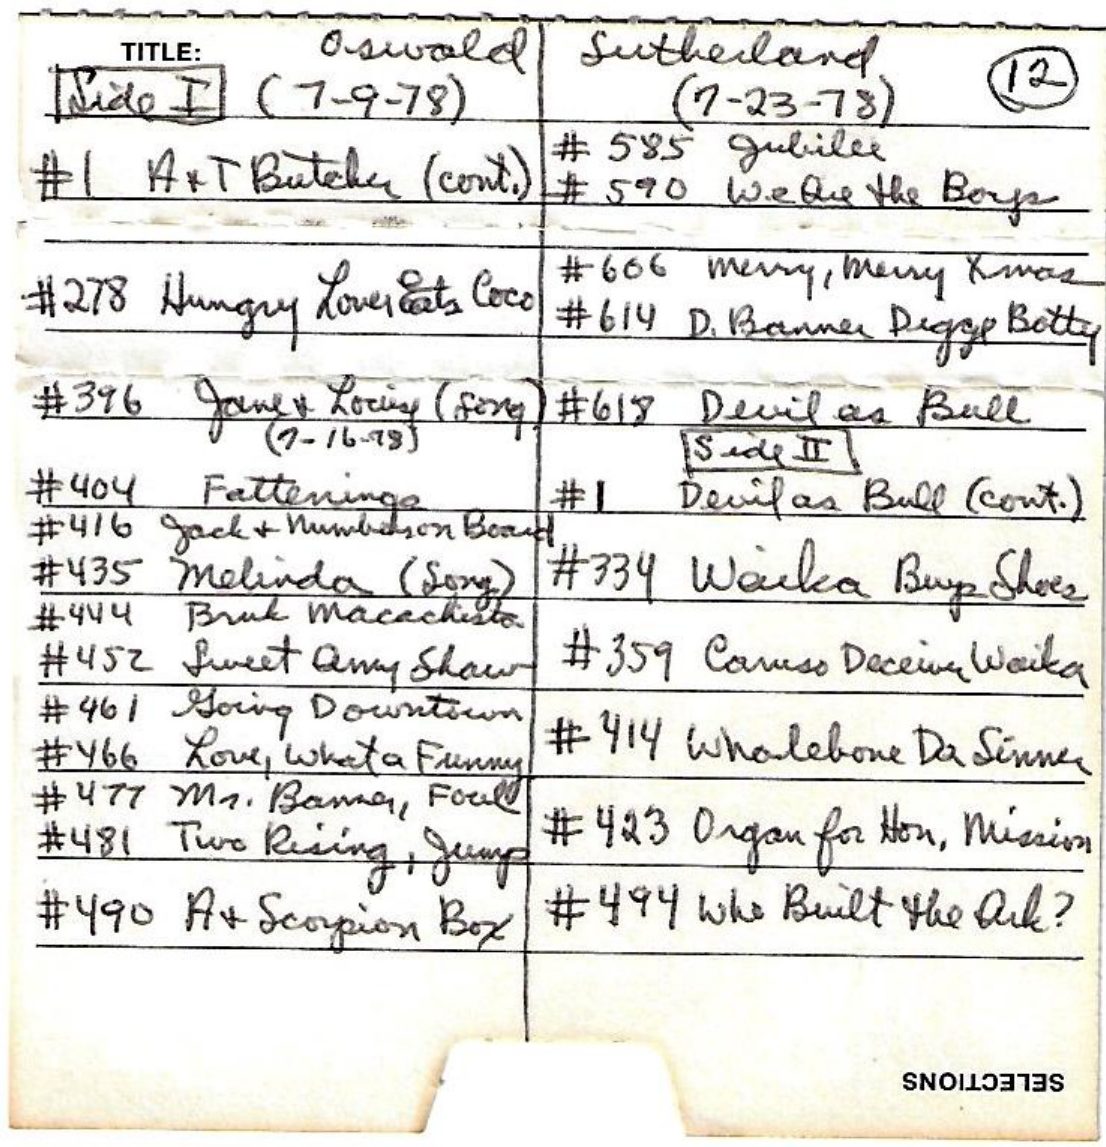 TITLE: Oswald Sutherland
Side I (7-9-78)
#1 A+T Butcher (cont.)
#278 Hungry Lover Eats Coco
#396 Jane + Louise (song)
(7-16-78)
#404 Fattenings
#416 Jack + Numberson Board
#435 Melinda (Song)
#444 Bruk Macachista
#452 Sweet Amy Shaw
#461 Going Downtown
#466 Love, What a Funny
#477 Mr. Banner, Foull
#481 Two Rising, Jump
#490 A + Scorpion Box
(7-23-78)
12
#585 Jubilee
#590 We Are the Boys
#606 Merry, Merry Xmas
#614 D. Banner Diggy Botty
#618 Devil as Bull
Side II
#1 Devil as Bull (cont.)
#334 Waika Buys Shoes
#359 Caruso Deceives Waika
#414 Whalebone Da Sinner
#423 Organ for Hon, Mission
#494 Who Built the Ark?
SELECTIONS